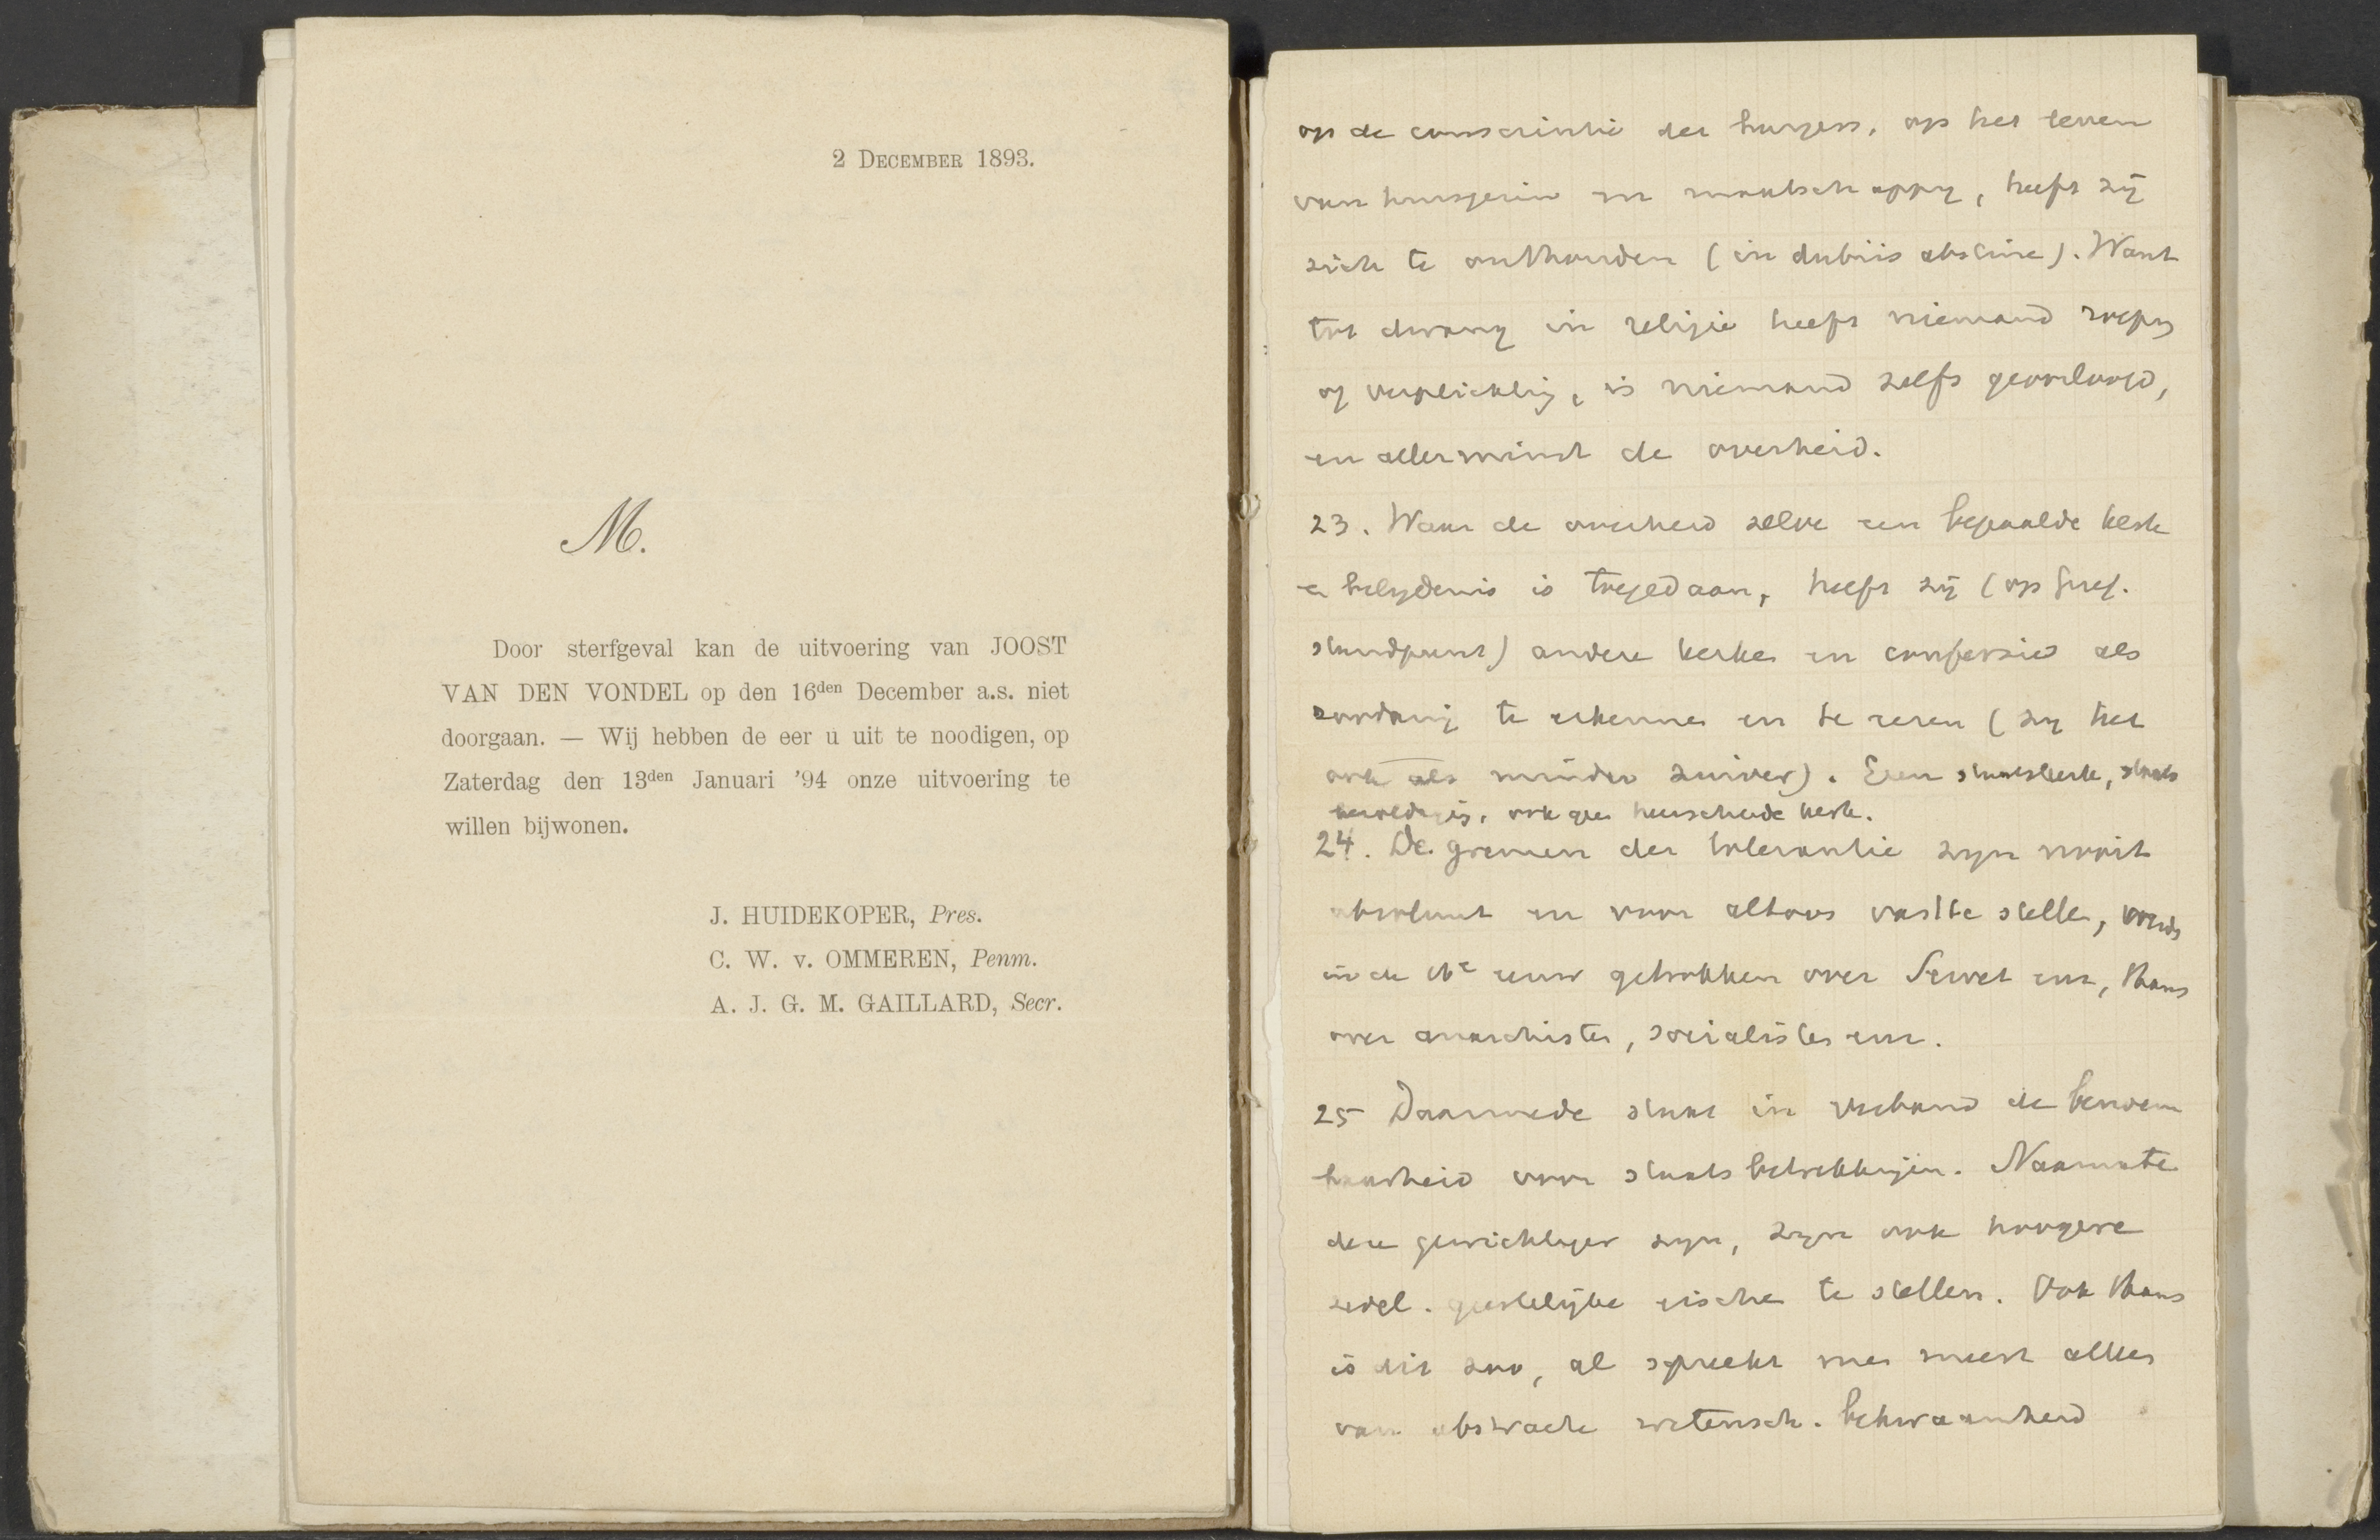 2 DECEMBER 1893.
M.
Door sterfgeval kan de uitvoering van JOOST
VAN DEN VONDEL op den 16den December a.s. niet
doorgaan. — Wij hebben de eer u uit te noodigen, op
Zaterdag den 13den Januari '94 onze uitvoering te
willen bijwonen.
J. HUIDEKOPER, Pres.
C. W. v. OMMEREN, Penm.
A. J. G. M. GAILLARD, Secr.
op de conscientie der burgers, op het leven
van huisgezin en maatschappy, heeft zij
zich te onthouden (in dubiis abstine). Want
tot dwang in religie heeft niemand roeping
of verplichting, is niemand zelfs geoorloofd,
en allerminst de overheid.
23. Waar de overheid zelve een bepaalde kerk
en belydenis is toegedaan, heeft zij (op Geref.
standpunt) andere kerken en confessies als
zoodanig te erkennen en te eeren (zy het
ook als minder zuiver). Geen staatskerk, staats
ook geen heerschende kerk.
24. De grenzen der tolerantie zyn nooit
absoluut en voor altoos vast te stellen,
in de 16e eeuw getrokken over Servet enz, thans
over anarchisten, socialisten enz.
25 Daarmede staat in verband de benoem
baarheid voor staatsbetrekkingen. Naarmate
deze gewichtiger zyn, zyn ook hoogere
zedel. geestelijke eischen te stellen. Ook thans
is dit zoo, al spreekt men meest alleen
van abstracte wetensch. bekwaamheid